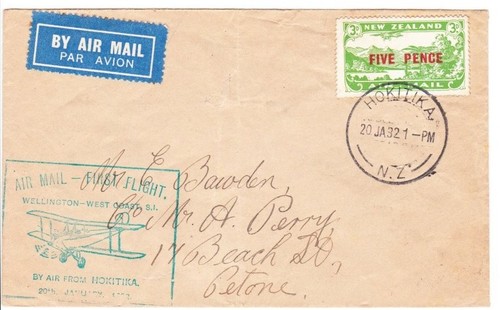 BY AIR MAIL
PAR AVION
3D NEW ZEALAND 3D
FIVE PENCE
MAIL
HOKITIKA
20 JA 32 1-PM
N.Z
AIR MAIL - FIRST FLIGHT,
WELLINGTON-WEST COAST, S.I.
BY AIR FROM HOKITIKA.
20TH JANUARY,
Mr E. Bawden,
C/o Mr. A. Perry,
17 Beach St,
Petone.